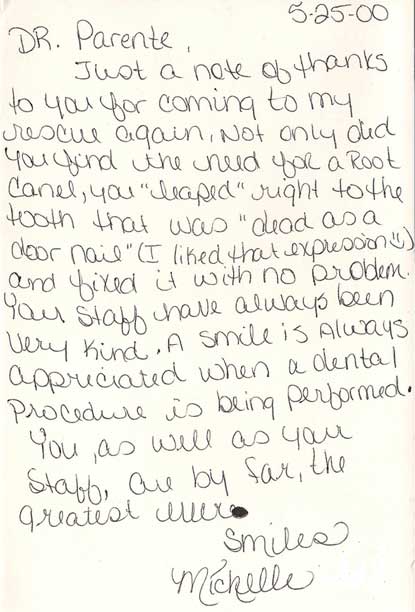 5-25-00
DR. Parente,
Just a note of thanks
to you for coming to my
rescue again. Not only did
you find the need for a Root
Canel, you "leaped" right to the
tooth that was "dead as a
door nail" (I liked that expression)
and fixed it with no problem.
Your staff have always been
very kind. A smile is Always
appriciated when a dental
procedure is being performed.
You, as well as your
staff, are by far, the
greatest ever
Smiles
Michelle